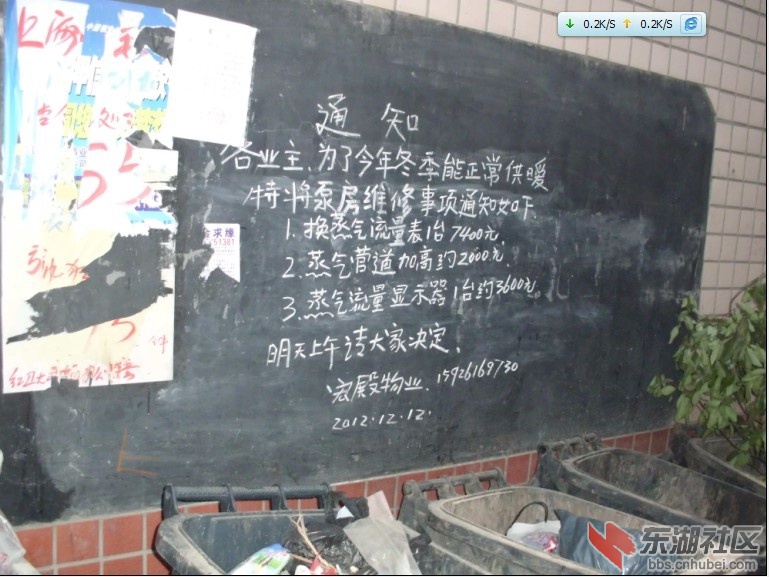 通知
各业主、为了今年冬季能正常供暖
特将泵房维修事项通知如下
1. 换蒸气流量表1台7400元.
2. 蒸气管道加高约2000元.
3. 蒸气流量显示器1台约3600元。
明天上午请大家决定.
宏殿物业. 15926169730
2012.12.12.
上海
求缘
51381
0.2K/S 0.2K/S
东湖社区
bbs.cnhubei.com